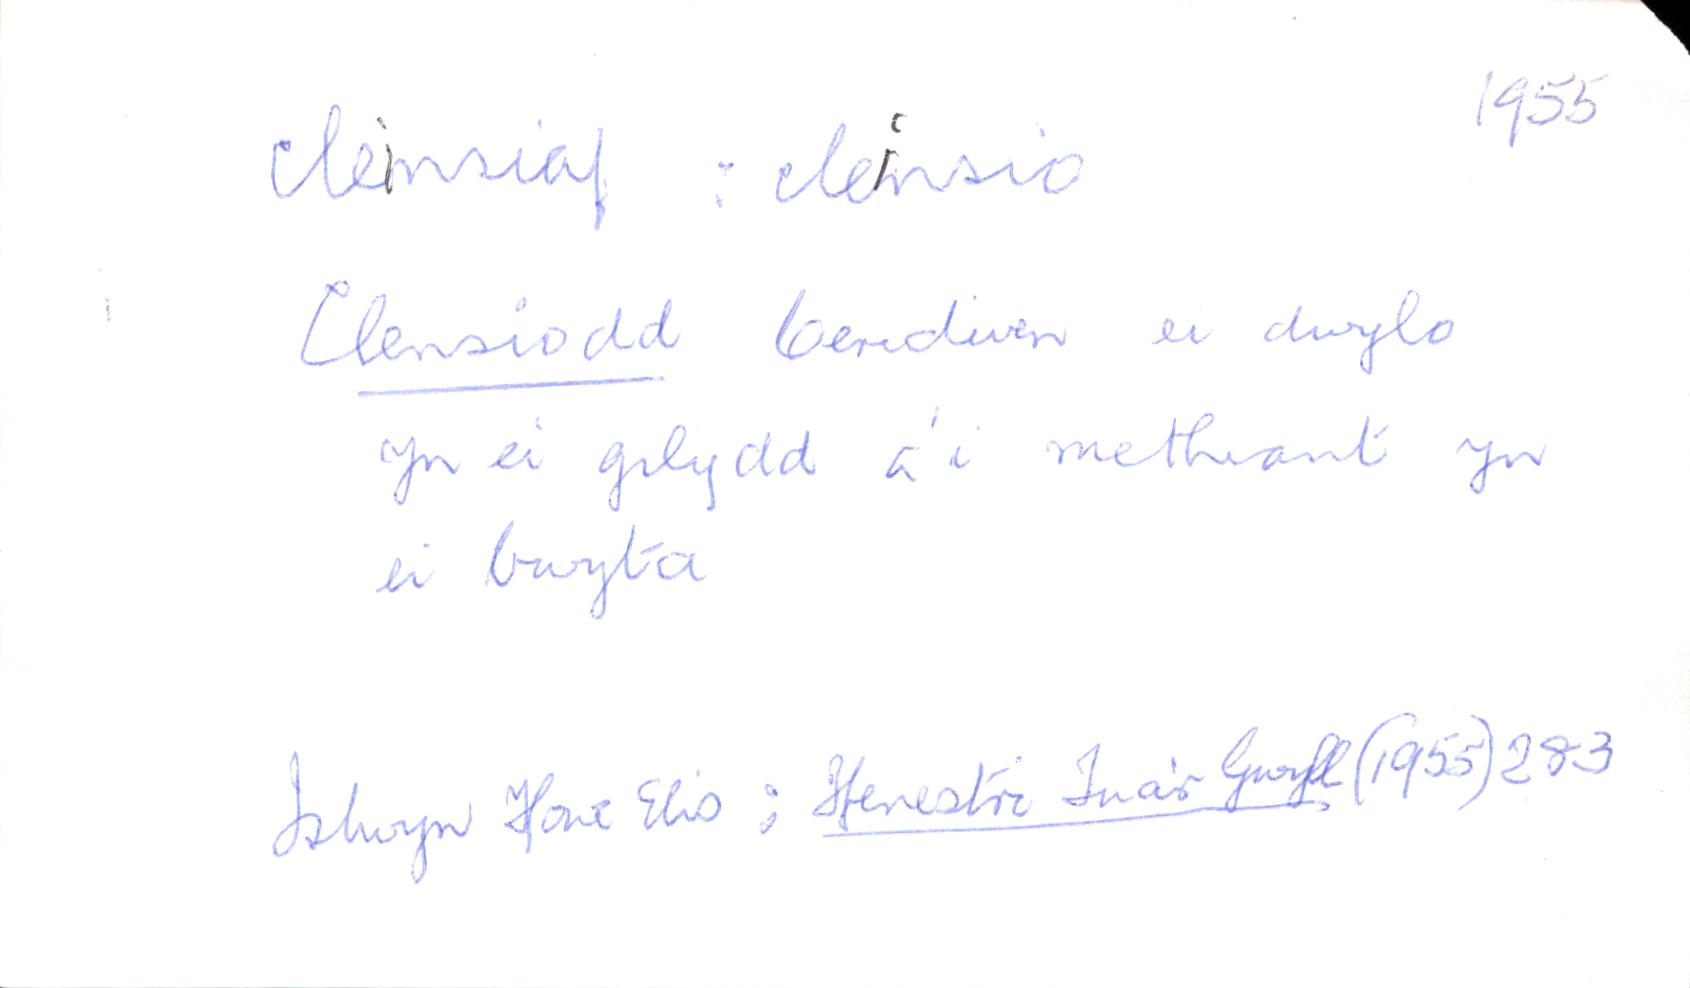 1955
cleinsiaf : cleinsio
Clensiodd Ceridwen ei dwylo
yn ei gilydd a'i methiant yn
ei bwyta
Islwyn Ffowc Elis ; Ffenestri Tua'r Gwyll (1955) 283